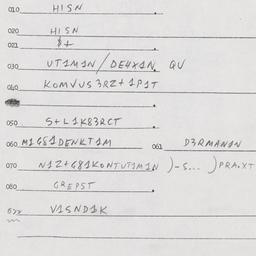 010 HISN
020 HISN
021 $+
030 UT1M1N/DE4X1N QU
040 KOMVUS 3RZ+ 1P1T
050 S+L1K83RCT
060 M1G81DENKT1M 061 D3RMAN1N
070 N1Z+G81KONTUT1M1N )-S... )PRA.XT
080 CREPST
V1SND1K